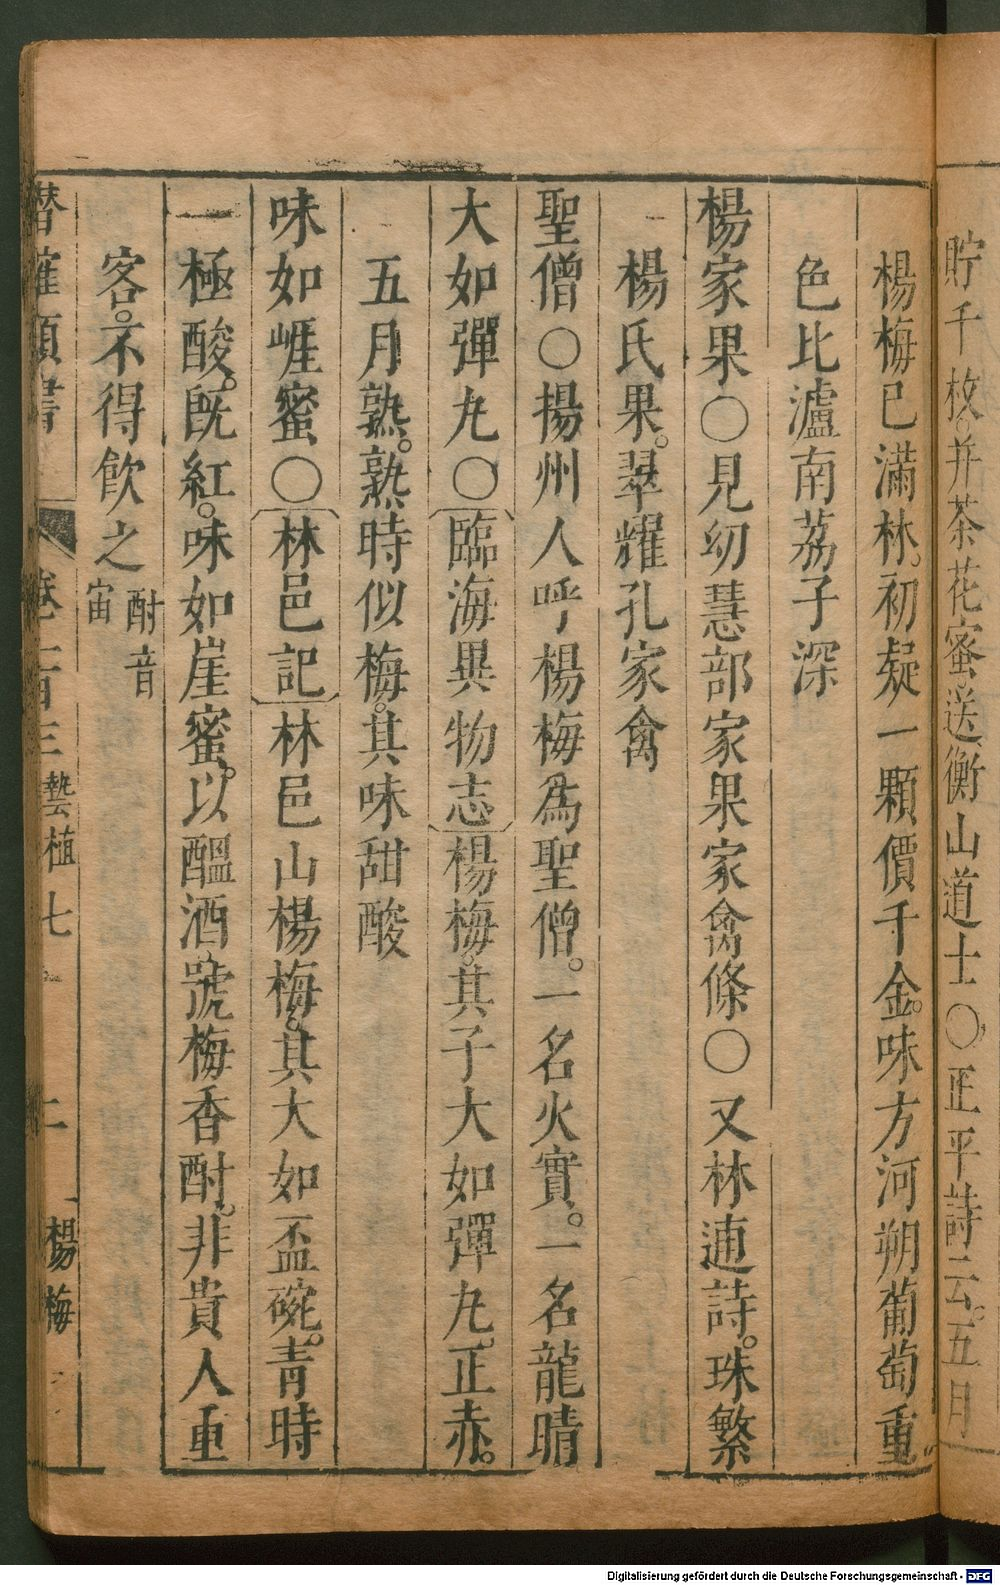 貯千枚。并茶花蜜。送衡山道士〇正平詩云。五月
楊梅已滿林。初疑一顆價千金。味方河朔葡萄重
色比瀘南荔子深
楊家果〇見幼慧部家果家禽條〇又林逋詩。珠繁
楊氏果。翠耀孔家禽
聖僧〇揚州人呼楊梅為聖僧。一名火實。一名龍睛
大如彈丸〇臨海異物志楊梅。其子大如彈丸。正赤。
五月熟。熟時似梅。其味甜酸
味如崕蜜〇林邑記林邑山楊梅。其大如盃碗。青時
一極酸。既紅。味如崖蜜。以醞酒。號梅香酎。非貴人重
客。不得飲之酎音宙
潛確類書 卷一百三 藝植七 二 楊梅
Digitalisierung gefördert durch die Deutsche Forschungsgemeinschaft - DFG